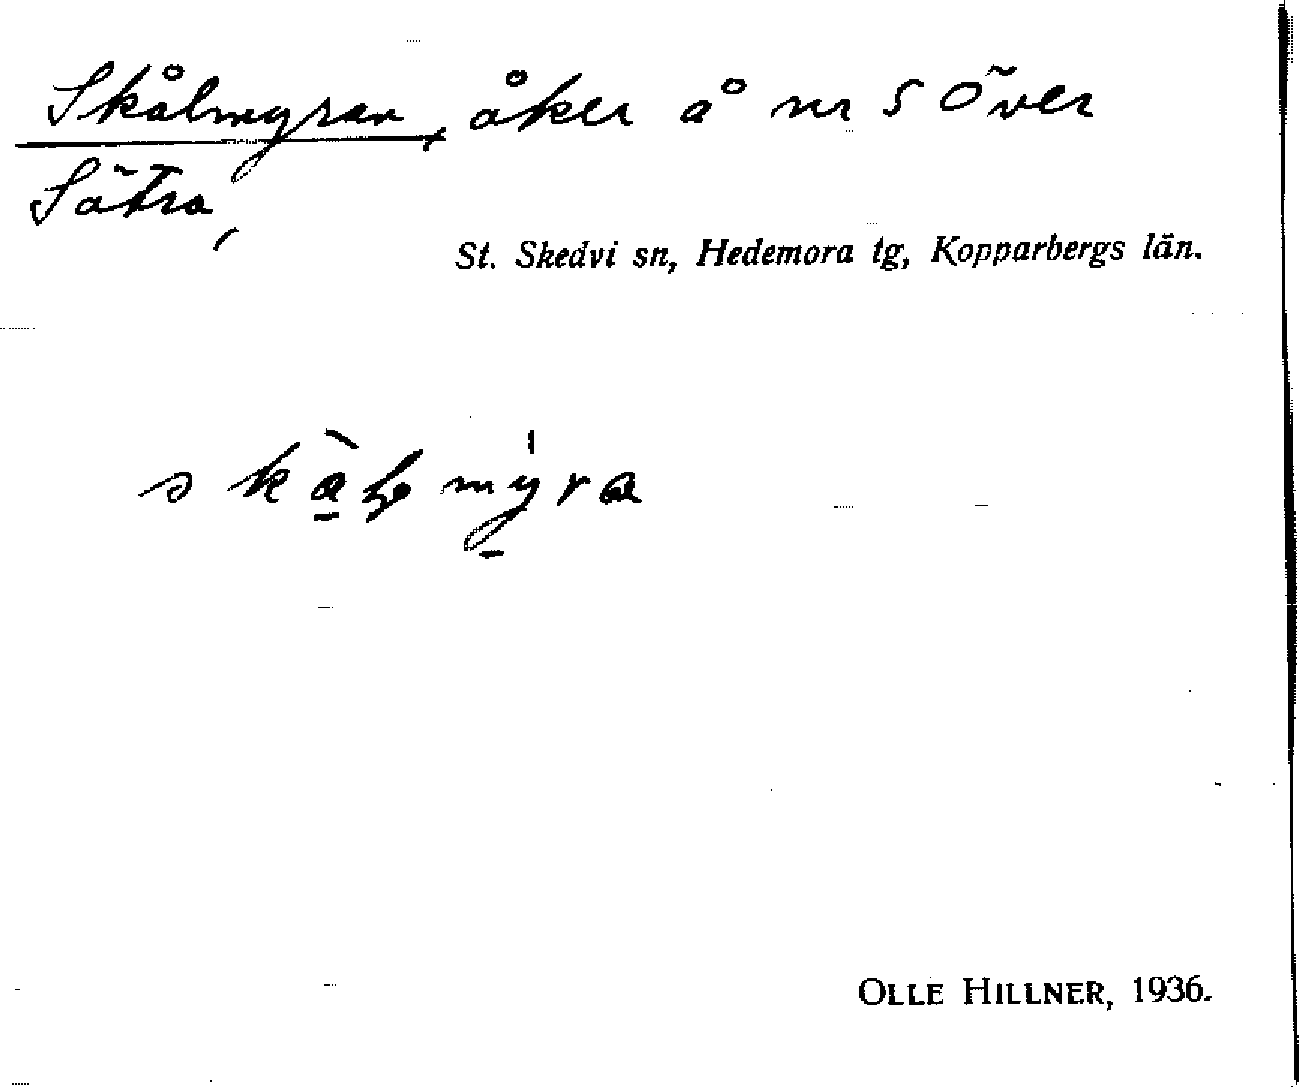 Skålmyran, åker å nr 5 Över
Sätra,
St. Skedvi sn, Hedemora tg, Kopparbergs län.
OLLE HILLNER, 1936.